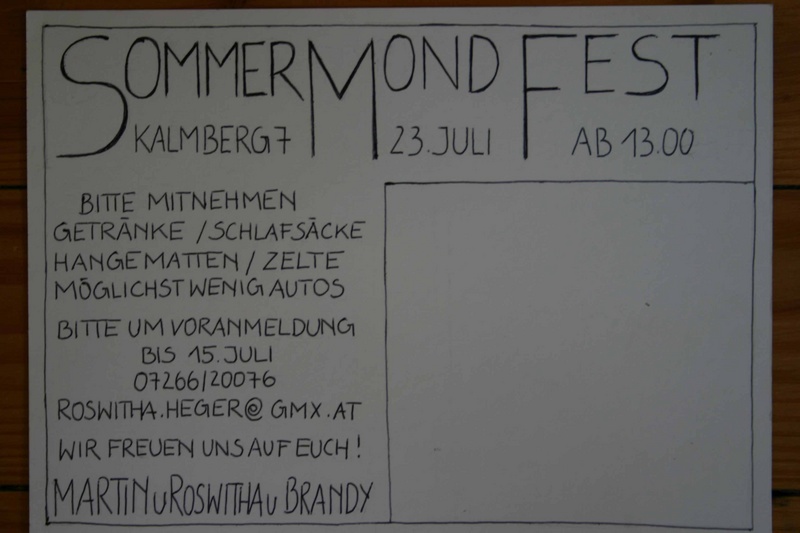 SOMMER MOND FEST
KALMBERG 7 23. JULI AB 13.00
BITTE MITNEHMEN
GETRÄNKE / SCHLAFSÄCKE
HANGEMATTEN / ZELTE
MÖGLICHST WENIG AUTOS
BITTE UM VORANMELDUNG
BIS 15. JULI
07266/20076
ROSWITHA.HEGER@GMX.AT
WIR FREUEN UNS AUF EUCH!
MARTIN u ROSWITHA u BRANDY